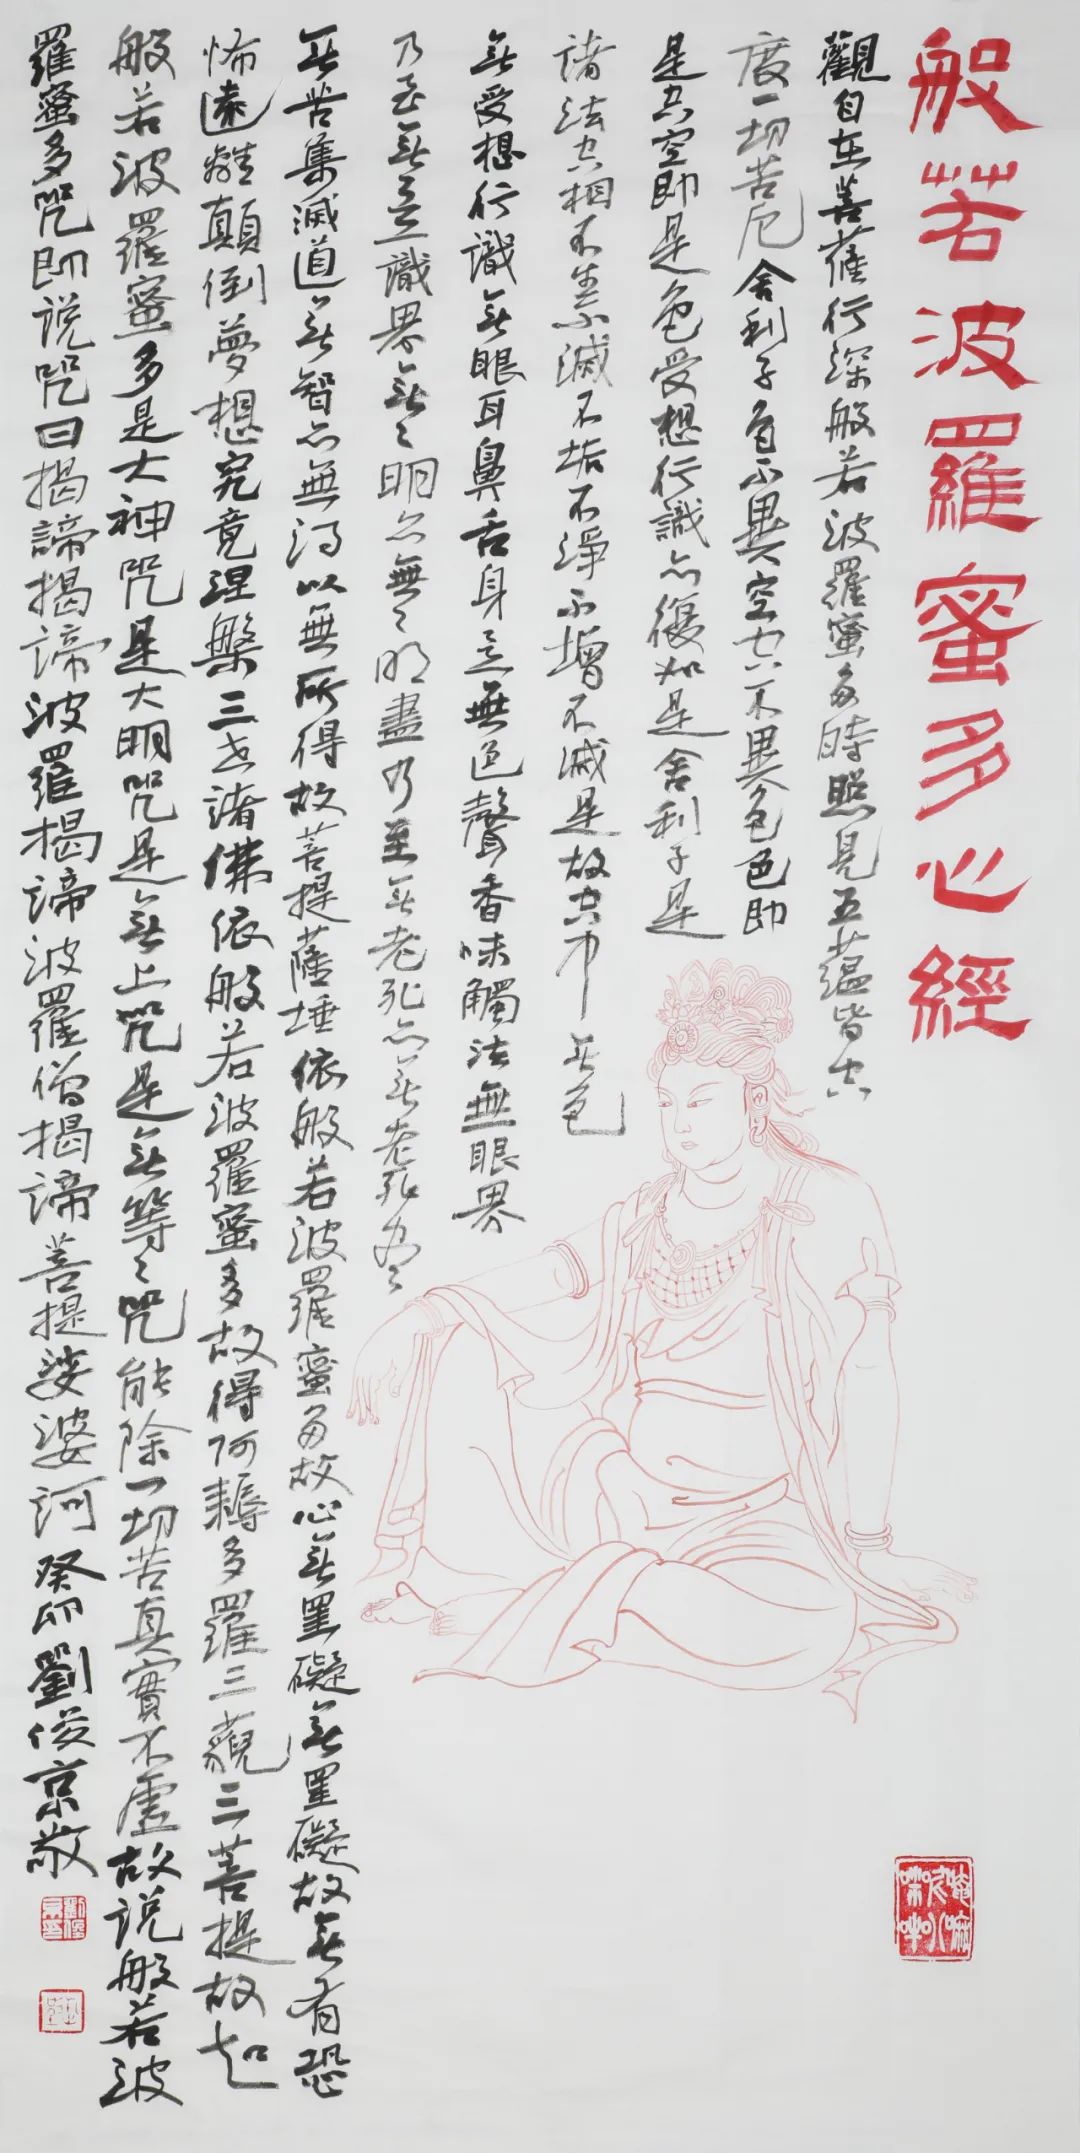 般若波羅蜜多心經
觀自在菩薩行深般若波羅蜜多時照見五蘊皆空
度一切苦厄舍利子色不異空空不異色色即
是空空即是色受想行識亦復如是舍利子是
諸法空相不生不滅不垢不淨不增不減是故空中無色
無受想行識無眼耳鼻舌身意無色聲香味觸法無眼界
乃至無意識界無〻明亦無〻明盡乃至無老死亦無老死盡
無苦集滅道無智亦無得以無所得故菩提薩埵依般若波羅蜜多故心無罣礙無罣礙故無有恐
怖遠離顛倒夢想究竟涅槃三世諸佛依般若波羅蜜多故得阿耨多羅三藐三菩提故知
般若波羅蜜多是大神咒是大明咒是無上咒是無等〻咒能除一切苦真實不虛故說般若波
羅蜜多咒即說咒曰揭諦揭諦波羅揭諦波羅僧揭諦菩提娑婆訶癸卯劉俊京敬
唵嘛呢叭咪吽